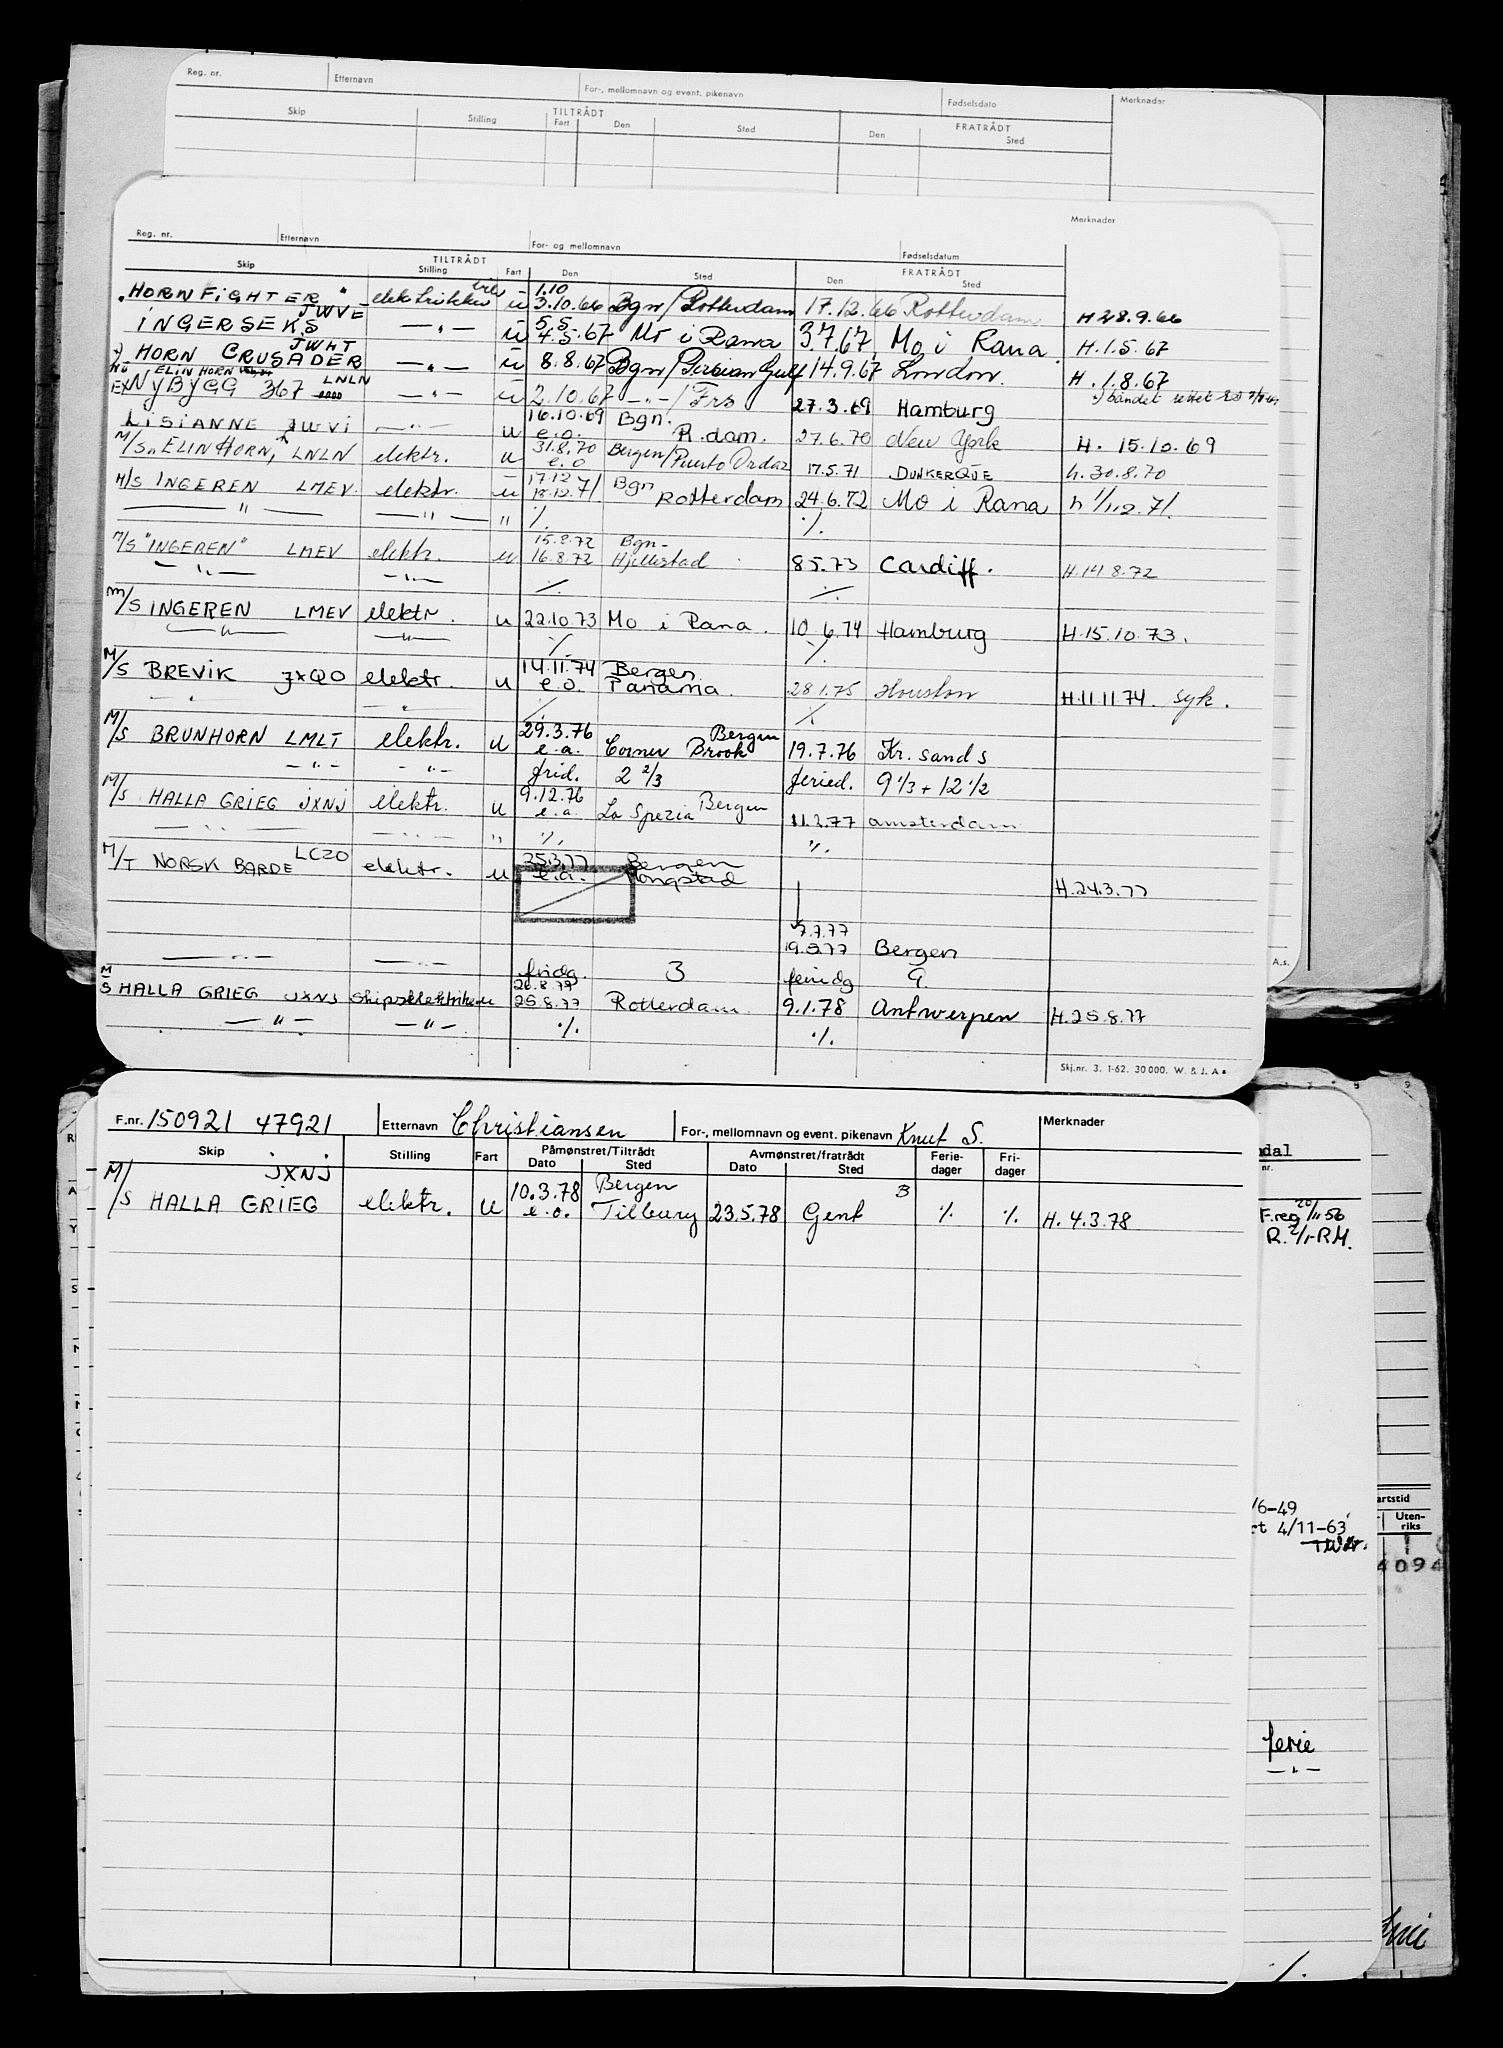 Reg. nr. Etternavn For-, mellomnavn og event. pikenavn Fødselsdato Merknader
Skip TILTRÅDT FRATRÅDT
Stilling Fart Den Sted Den Sted
Merknader
Reg. nr. Etternavn For- og mellomnavn Fødselsdatum
Skip TILTRÅDT FRATRÅDT
Stilling Fart Den Sted Den Sted
1.10
HORN FIGHTER elektrikker u 3.10.66 Bgn/Rotterdam 17.12.66 Rotterdam H 28.9.66
JWVE 5.5.
INGERSEKS —"— u 4.5.67 Mo i Rana 3.7.67 Mo i Rana H.1.5.67
JWHT
HORN CRUSADER —"— u 8.8.67 Bgn/Persian Gulf 14.9.67 London. H.1.8.67
ELIN HORN LNLN
EX NYBYGG 367 —"— u 2.10.67 —"—/Frs 27.3.69 Hamburg
16.10.69 Bgn.
LISIANNE JWVI —"— u e.o. R.dam. 27.6.70 New York H. 15.10.69
31.8.70
M/S "ELIN HORN" LNLN elektr. u e.o Bergen/Puerto Ordaz 17.5.71 DUNKERQUE h.30.8.70
17.12 Bgn
M/S INGEREN LMEV. elektr. u 18.12.71 Rotterdam 24.6.72 Mo i Rana h 1/12.71.
—"— —"— " ./. ./.
15.8.72 Bgn-
M/S "INGEREN" LMEV elektr. u 16.8.72 Hjellestad 8.5.73 Cardiff. H.14.8.72
—"— —"— ./. ./.
M/S INGEREN LMEV elektr. u 22.10.73 Mo i Rana. 10.6.74 Hamburg H.15.10.73.
—"— —"— ./. ./.
14.11.74 Bergen
M/S BREVIK JXQO elektr. u e.o. Panama. 28.1.75 Houston H.11.11.74. syk.
—"— " ./. ./.
29.3.76 Bergen
M/S BRUNHORN LMLT elektr. u e.a. Corner Brook 19.7.76 Kr.sand s
—"— —"— frid. 2 2/3 feried. 9 1/3 + 12 1/2
9.12.76
M/S HALLA GRIEG JXNJ elektr. u e.a. La Spezia Bergen 11.2.77 amsterdam
—"— —"— " ./. ./.
LCZO 25.3.77 Bergen
M/T NORSK BARDE elektr. u e.a. Mongstad H.24.3.77
7.7.77
19.5.77 Bergen
—"— —"— fridg. 3 feridg 9.
26.8.77
M/S HALLA GRIEG JXNJ skipselektriker u 25.8.77 Rotterdam. 9.1.78 Antwerpen H.25.8.77
—"— —"— ./. ./.
Skj.nr. 3. 1-62. 30000. W. & J. A s
A.s.
F.nr. 150921 47921 Etternavn Christiansen For-, mellomnavn og event. pikenavn Knut S. Merknader
Skip Stilling Fart Påmønstret/Tiltrådt Avmønstret/fratrådt Ferie- Fri-
Dato Sted Dato Sted dager dager
JXNJ 10.3.78 Bergen B
M/S HALLA GRIEG elektr. u e.o. Tilbury 23.5.78 Gent ./. ./. H. 4.3.78
dal
nr.
F.reg 20/11 56
R. 2/1-RM.
artstid
/6-49
rt 4/11-63
Uten-
riks
4094
ferie
—"—
./.